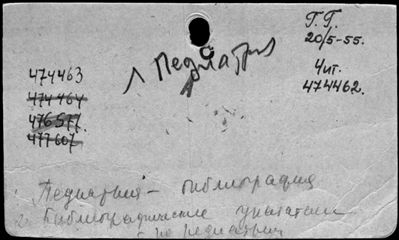 Г.Г.
20/5-55.
Чит.
474462.
1 Педиатрия
474463
474464
476577.
477607
1. Педиатрия – библиография
2. Библиографические указатели
по педиатрии